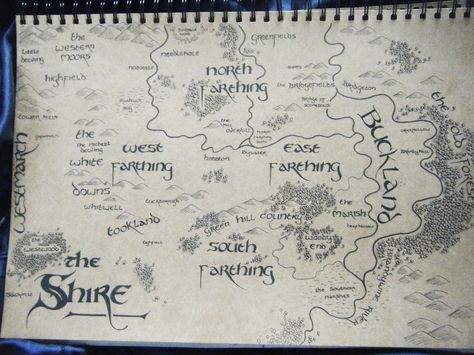 the
western
moors
Little
Delving
needlehole
GREENFIELDS
NOBOTTLE
HIGHFIELD
NORTH
FARTHING
the BRIDGEFIELDS
BUDGEFORD
TOWER HILLS
the
WHITE
DOWNS
the michel
delving
WEST
FARTHING
OVERHILL
HOBBITON
BYWATER
EAST
FARTHING
BUCKLAND
the OLD
WESTMARCH
WHITWELL
TUCKBOROUGH
TOOKLAND
GREEN HILL COUNTRY
the
MARISH
WOODY
END
SOUTH
FARTHING
the Southern
marshes
BRANDYWINE RIVER
the
WESTWOOD
the
SHIRE